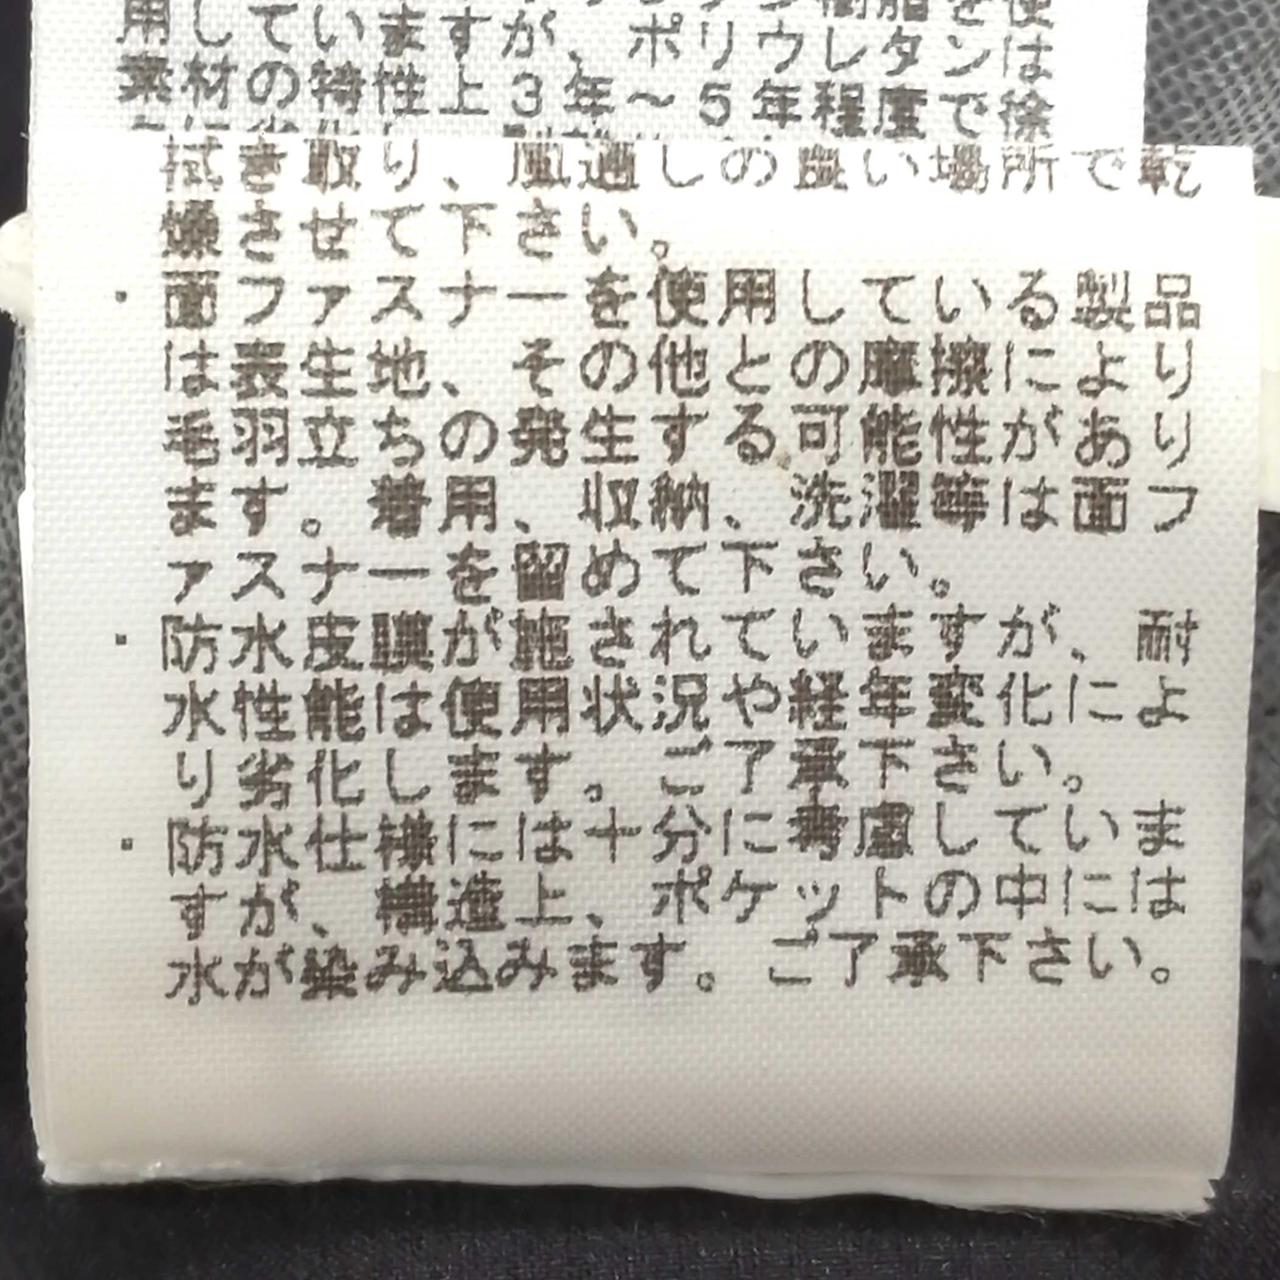 樹脂を使
用していますが、ポリウレタンは
素材の特性上3年～5年程度で徐
拭き取り、風通しの良い場所で乾
燥させて下さい。
・面ファスナーを使用している製品
は表生地、その他との摩擦により
毛羽立ちの発生する可能性があり
ます。着用、収納、洗濯等は面フ
ァスナーを留めて下さい。
・防水皮膜が施されていますが、耐
水性能は使用状況や経年変化によ
り劣化します。ご了承下さい。
・防水仕様には十分に考慮していま
すが、構造上、ポケットの中には
水が染み込みます。ご了承下さい。